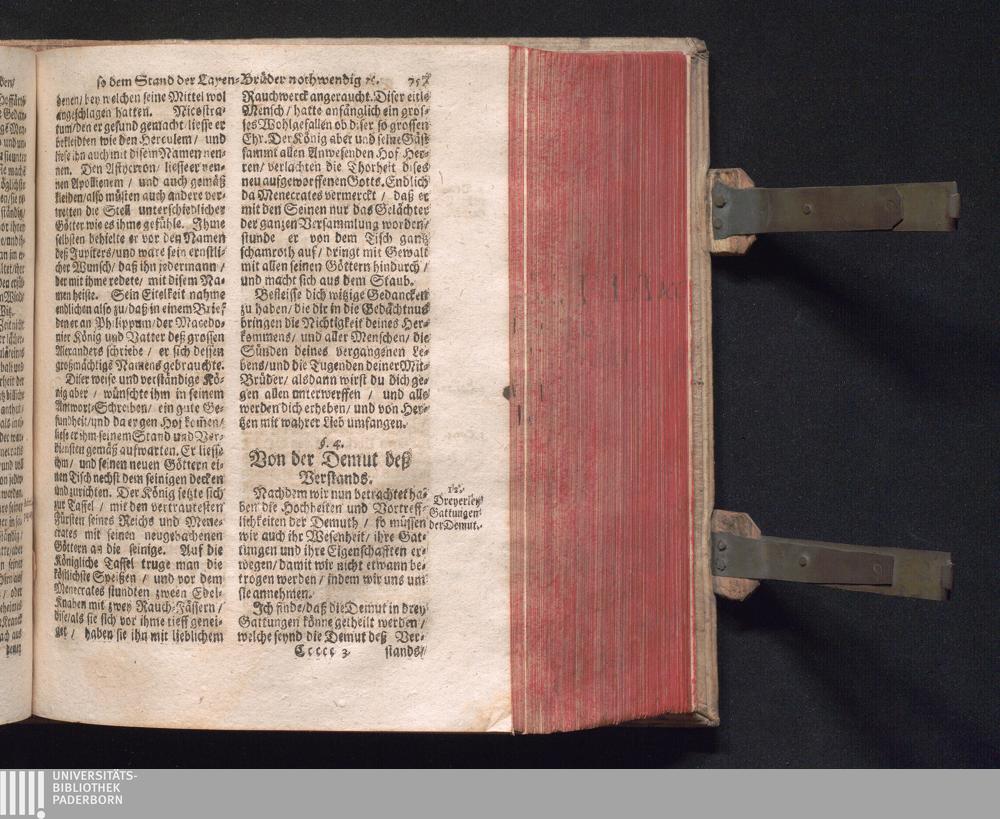 so dem Stand der Layen-Brüder nothwendig ꝛc. 757
jenen/ bey welchen seine Mittel wol
angeschlagen hatten. Nicostra-
tum/ den er gesund gemacht/ liesse er
bekleidten wie den Herculem/ und
liese ihn auch mit disem Namen nen-
nen. Den Astycreon/ liesse er nen-
nen Apollinem/ und auch gemäß
kleiden/ also müsten auch andere ver-
tretten die Stell unterschiedlicher
Götter wie es ihme gefühle. Ihme
selbsten behielte er vor den Namen
deß Jupiters/ und ware sein ernstli-
cher Wunsch/ daß ihn jedermann/
der mit ihme redete/ mit disem Na-
men heiste. Sein Eitelkeit nahme
endlichen also zu/ daß in einem Brief
den er an Philippum/ der Macedo-
nier König und Vatter deß grossen
Alexanders schriebe/ er sich dessen
großmächtige Namens gebrauchte.
Diser weise und verständige Kö-
nig aber/ wünschte ihm in seinem
Antwort-Schreiben/ ein gute Ge-
sundheit/ und da er gen Hof komen/
liese er ihm seinem Stand und Ver-
diensten gemäß aufwarten. Er liesse
ihm/ und seinen neuen Göttern ei-
nen Tisch nechst dem seinigen decken
und zurichten. Der König setzte sich
zur Taffel/ mit den vertrautesten
Fürsten seines Reichs und Mene-
crates mit seinen neugebachenen
Göttern an die seinige. Auf die
Königliche Taffel truge man die
köstlichste Speißen/ und vor dem
Menecrates stundten zween Edel-
Knaben mit zwey Rauch-Fässern/
dise/ als sie sich vor ihme tieff genei-
get/ haben sie ihn mit lieblichem
Rauchwerck angeraucht. Diser eitle
Mensch/ hatte anfänglich ein gros-
ses Wohlgefallen ob diser so grossen
Ehr. Der König aber und seine Gäst
sammt allen Anwesenden Hof Her-
ren/ verlachten die Thorheit dises
neu aufgeworffenen Gotts. Endlich
da Menecrates vermerckt/ daß er
mit den Seinen nur das Gelächter
der ganzen Versammlung worden/
stunde er von dem Tisch gantz
schamroth auf/ dringt mit Gewalt
mit allen seinen Göttern hindurch/
und macht sich aus dem Staub.
Befleisse dich witzige Gedancken
zu haben/ die dir in die Gedächtnus
bringen die Nichtigkeit deines Her-
kommens/ und aller Menschen/ die
Sünden deines vergangenen Le-
bens/ und die Tugenden deiner Mit-
Brüder/ alsdann wirst du dich ge-
gen allen unterwerffen/ und alle
werden dich erheben/ und von Her-
tzen mit wahrer Lieb umfangen.
§. 4.
Von der Demut deß
Verstands.
Nachdem wir nun betrachtet ha-
ben die Hochheiten und Vortreff-
lichkeiten der Demuth/ so müssen
wir auch ihr Wesenheit/ ihre Gat-
tungen und ihre Eigenschafften er-
wegen/ damit wir nicht etwann be-
trogen werden/ indem wir uns um
sie annehmen.
Ich finde/ daß die Demut in drey
Gattungen könne getheilt werden/
welche seynd die Demut deß Ver-
Ccccc 3 stands/
12.
Dreyerley
Gattungen
der Demut.
UNIVERSITÄTS-
BIBLIOTHEK
PADERBORN